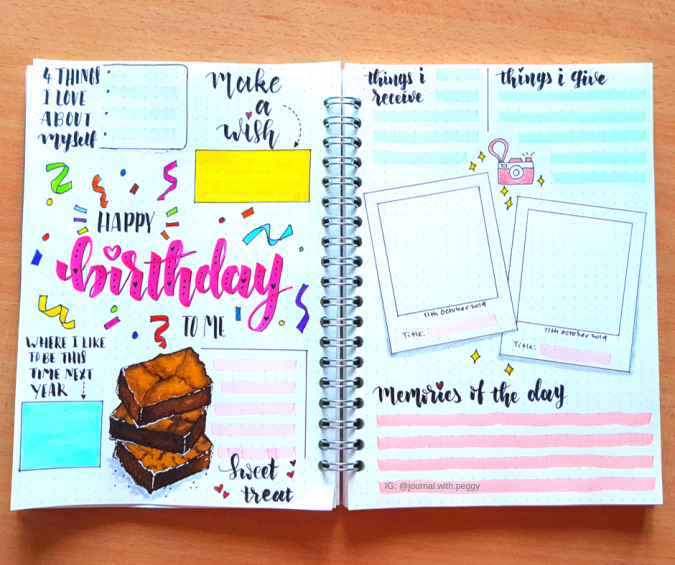 4 THINGS
I LOVE
ABOUT
myself
Make
a
wish
HAPPY
birthday
TO ME
WHERE I LIKE
TO BE THIS
TIME NEXT
YEAR
Sweet
treat
things i
receive
things i give
11th october 2019
Title:
11th october 2019
Title:
Memories of the day
IG: @journal.with.peggy